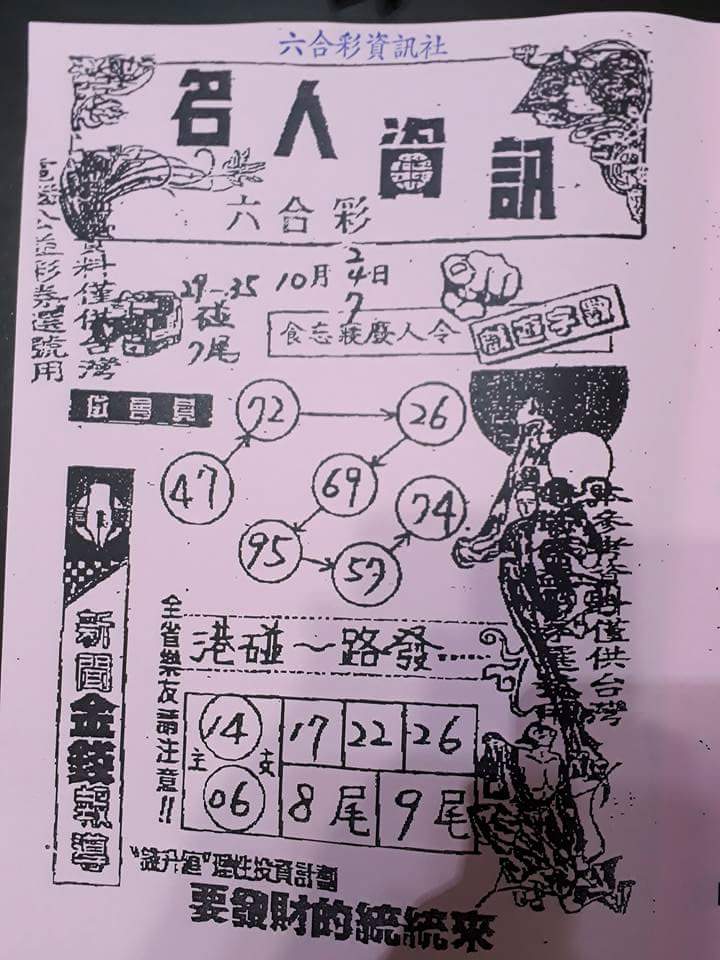 六合彩資訊社
名人資訊
六合彩
29-35
碰
7尾
10月24日
7
令人廢寢忘食
72
26
47
69
74
95
57
新聞金錢報導
全省樂友請注意!!
港碰~路發.....
主
14
06
支
17 22 26
8尾 9尾
資料僅供台灣
公益彩券選號用
參考資料僅供台灣
"錢升值"理性投資計劃
要發財的統統來